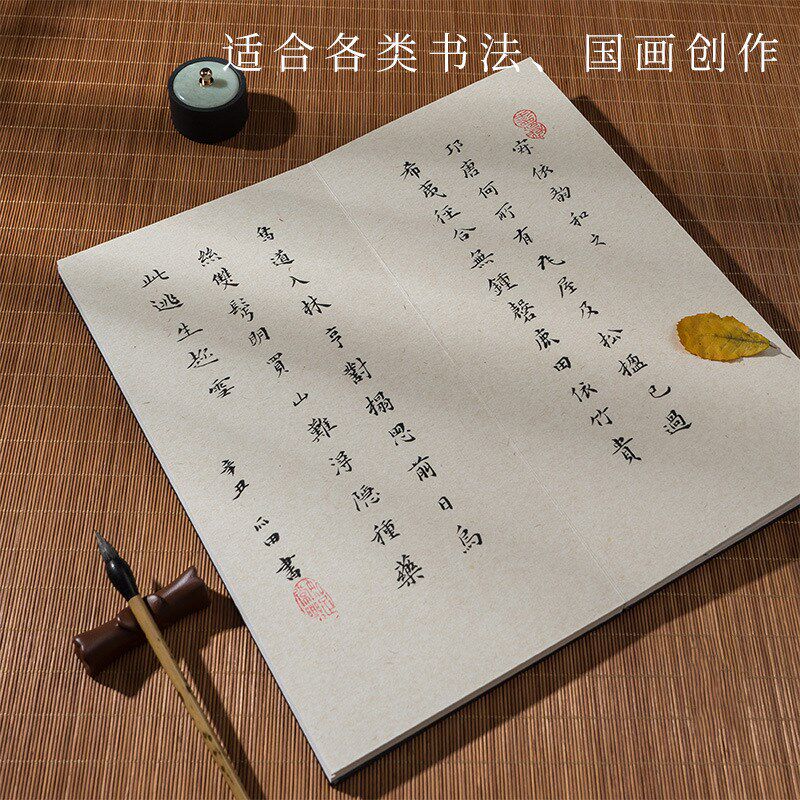 适合各类书法、国画创作
依韵和之
唐何所有老屋及松楹已過
希夷徑合無鍾磬田依竹貴
道入林亨對榻思前日烏
絲雙鬢明買山難浮隱種藥
此逃生起雲
辛丑田書